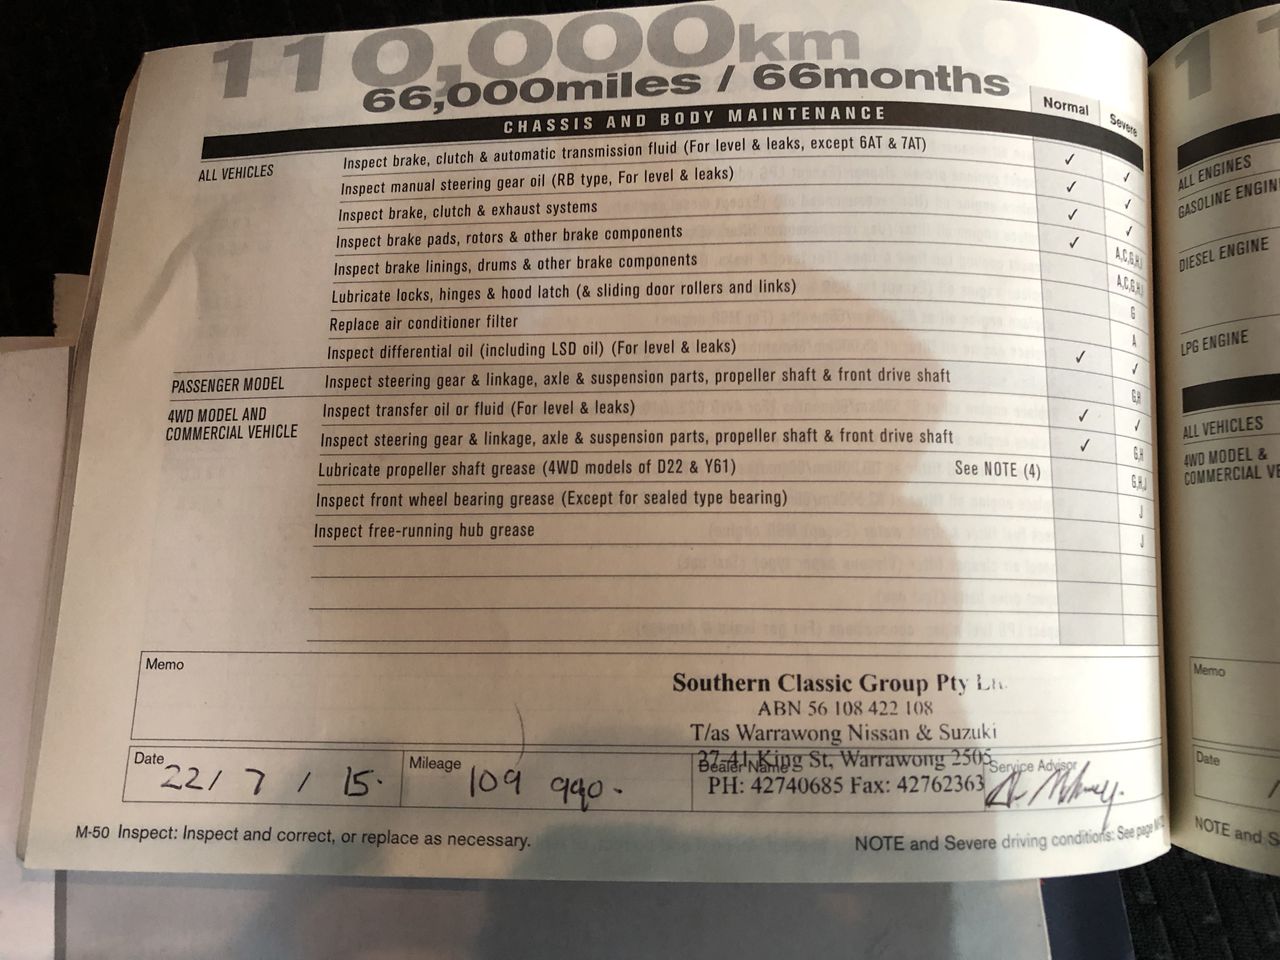 110,000km
66,000miles / 66months
Normal Severe
CHASSIS AND BODY MAINTENANCE
ALL VEHICLES Inspect brake, clutch & automatic transmission fluid (For level & leaks, except 6AT & 7AT) ✓ ✓
Inspect manual steering gear oil (RB type, For level & leaks) ✓ ✓
Inspect brake, clutch & exhaust systems ✓ ✓
Inspect brake pads, rotors & other brake components ✓ A,C,G,H,I
Inspect brake linings, drums & other brake components A,C,G,H,I
Lubricate locks, hinges & hood latch (& sliding door rollers and links) G
Replace air conditioner filter A
Inspect differential oil (including LSD oil) (For level & leaks) ✓ ✓
PASSENGER MODEL Inspect steering gear & linkage, axle & suspension parts, propeller shaft & front drive shaft G,H
4WD MODEL AND COMMERCIAL VEHICLE Inspect transfer oil or fluid (For level & leaks) ✓ ✓
Inspect steering gear & linkage, axle & suspension parts, propeller shaft & front drive shaft ✓ G,H
Lubricate propeller shaft grease (4WD models of D22 & Y61) See NOTE (4) G,H,J
Inspect front wheel bearing grease (Except for sealed type bearing) J
Inspect free-running hub grease J
Memo
Southern Classic Group Pty
ABN 56 108 422 108
T/as Warrawong Nissan & Suzuki
37-41 King St, Warrawong 2505
PH: 42740685 Fax: 42762363
Date 22/ 7 / 15.
Mileage 109 990.
Dealer Name
Service Advisor
M-50 Inspect: Inspect and correct, or replace as necessary.
NOTE and Severe driving conditions: See page
1
ALL ENGINES
GASOLINE
DIESEL ENGINE
LPG ENGINE
ALL VEHICLES
4WD MODEL &
COMMERCIAL
Memo
Date
NOTE and